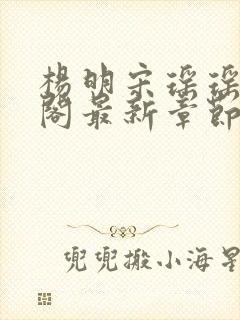 杨明宋瑶瑶
阁最新章节
兜兜搬小海星